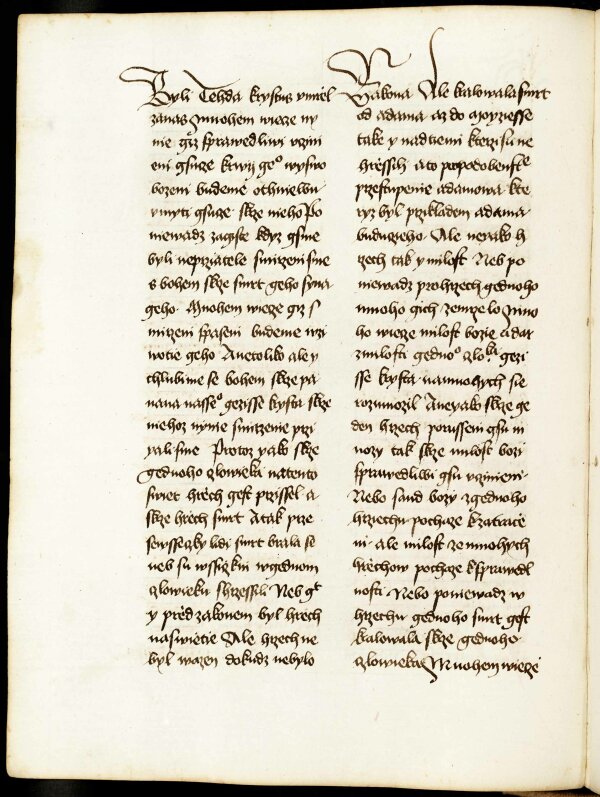 Byli Tehda krystus vmrel
zanas Mnohem wiecze ny
nie giz sprawedliwi vczini
eni gsucze krwij geo
bozem budeme othniewu
vmyti gsucze skrze nieho Po
niewadz zagiste kdyz gsme
byli neprzatele smirzeni sme
s bohem skrze smrt geho syna
geho Mnohem wiecze giz s
mirzeni spaseni budeme wzi
wotie geho Anetoliko ale y
chlubime se bohem skrze pa
nana nasseo gezisse krysta skrze
niehoz nynie smirzenie przi
yali sme Protoz yako skrze
gednoho czlowieka natento
swiet hrech gest przissel a
skrze hrech smrt Atak prze
smrt brala se
neb su wssiczkni wgednom
czlowieku shrzessili Neb
y pred zakonem byl hrech
naswietie Ale hrzech ne
byl wazen dokudz nebylo
zakona Ale kalowala smrt
od adama az do moyziesse
take y nadtiemi kterzi su ne
hressili ato
przestupenie adamowa kte
ryz byl przikladem adama
buducieho Ale neyako h
rzech tak y milost Neb po
niewadz pro hrzech gednoho
mnoho gich zemrzelo Mno
ho wiecze milost bozie a dar
zmilosti gednoo czlowieka gezi
sse krysta namnohych sie
rozmnozil Aneyako skrze ge
den hrzech porusseni gsu in
nozy tak skrze milost bozi
sprawedliwi gsu vczinieni
Nebo sud bozy zgednoho
hrziechu pochaze kzatrace
ni ale milost ze mnohych
hrechow pochaze ksprawedl
nosti Nebo poniewadz w
hrziechu gednoho smrt gest
kalowala skrze gednoho
czlowieka Mnohem wiecze